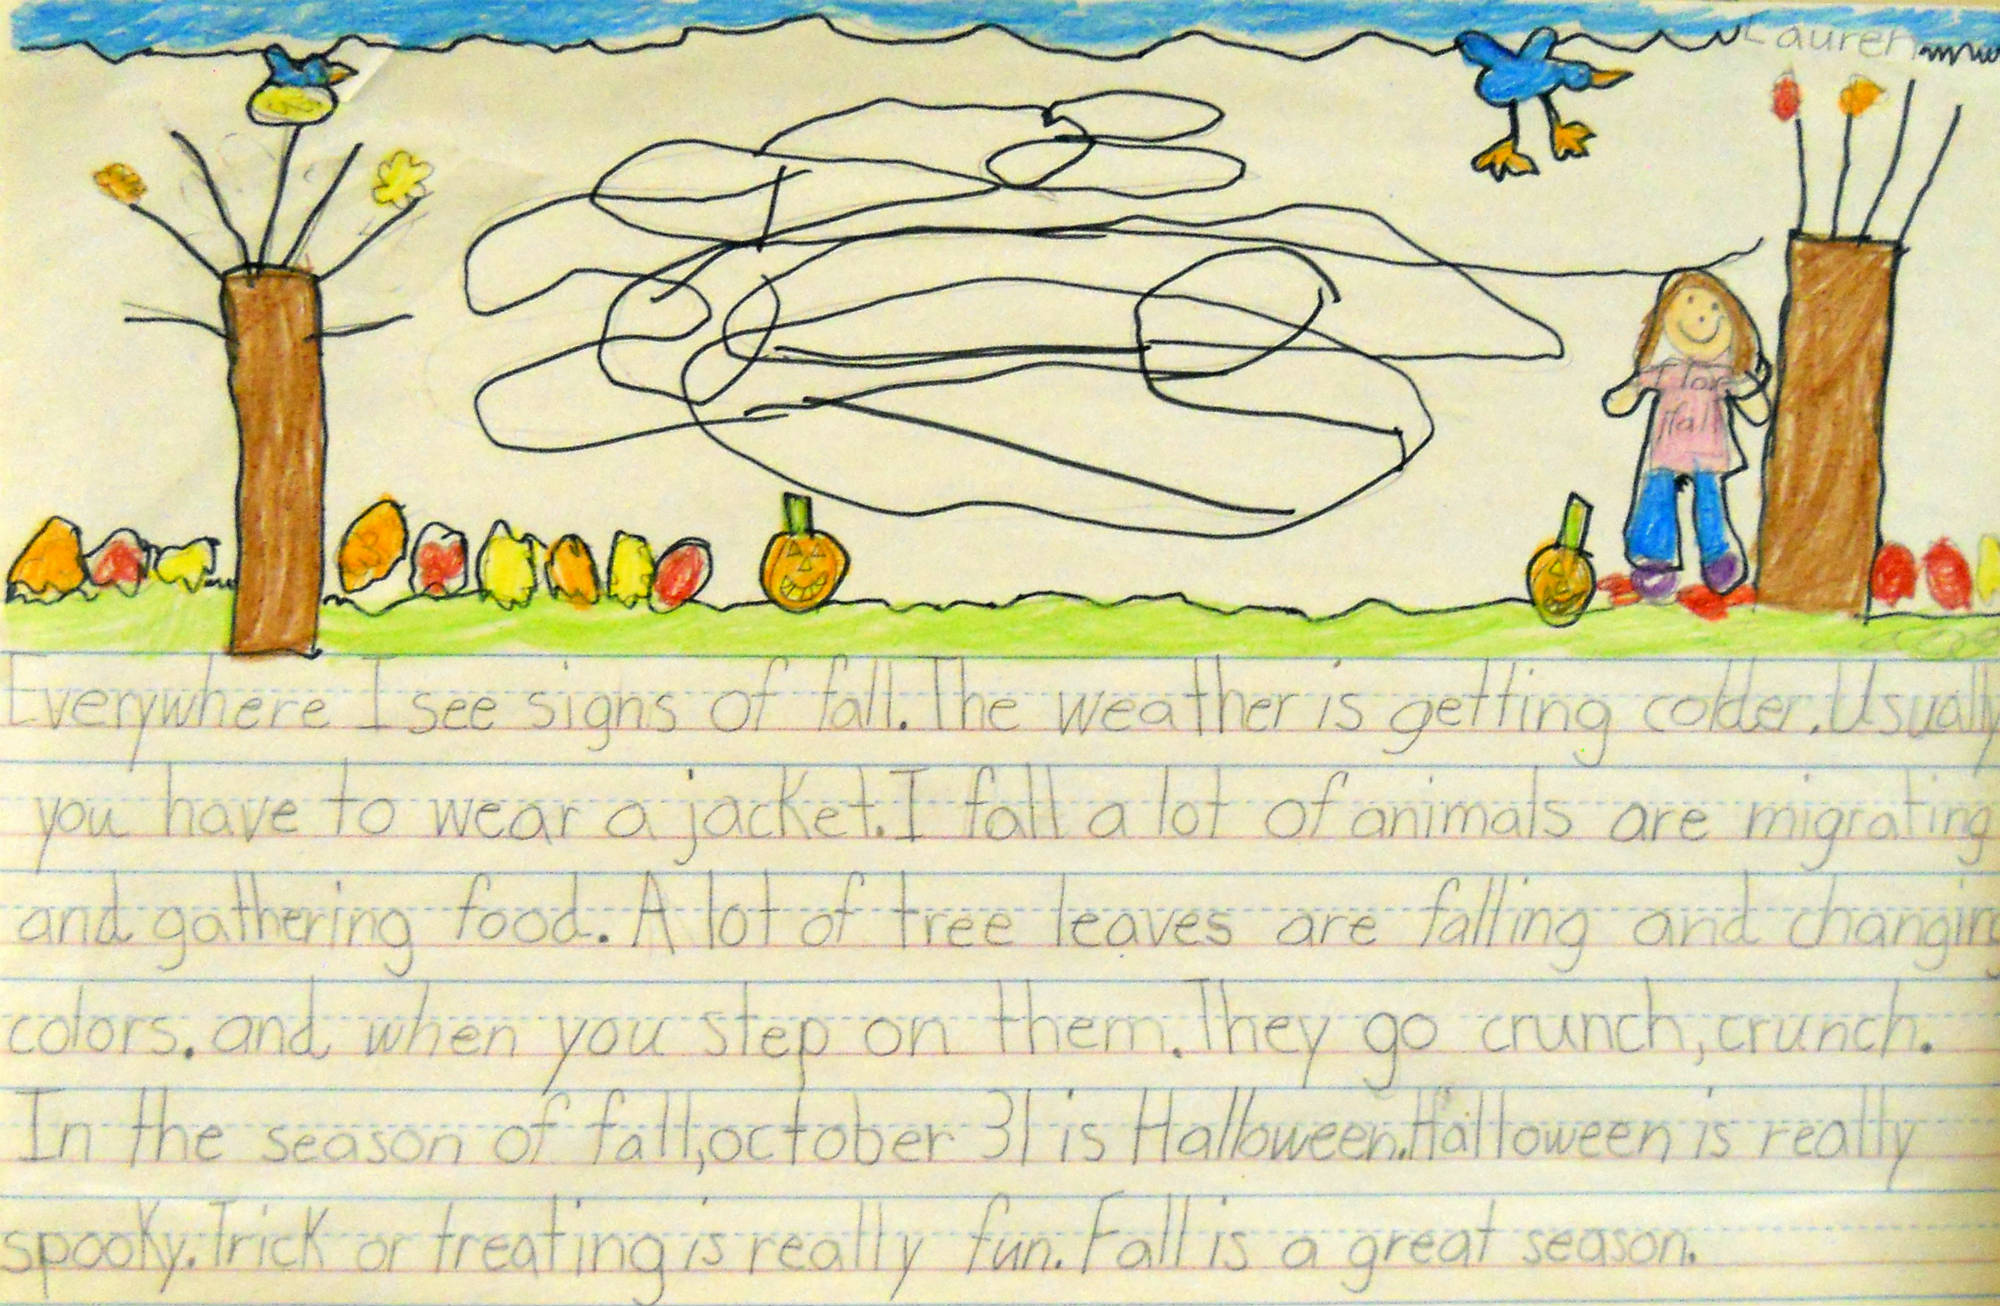 Lauren
Everywhere I see signs of fall. The weather is getting colder. Usually
you have to wear a jacket. I fall a lot of animals are migrating
and gathering food. A lot of tree leaves are falling and changing
colors. and when you step on them. They go crunch, crunch.
In the season of fall, october 31 is Halloween. Halloween is really
spooky. Trick or treating is really fun. Fall is a great season.